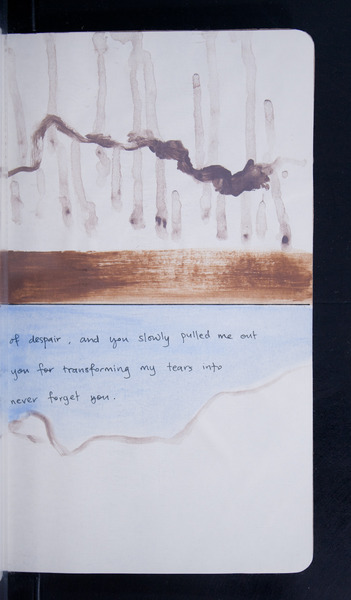 of despair, and you slowly pulled me out
you for transforming my tears into
never forget you.